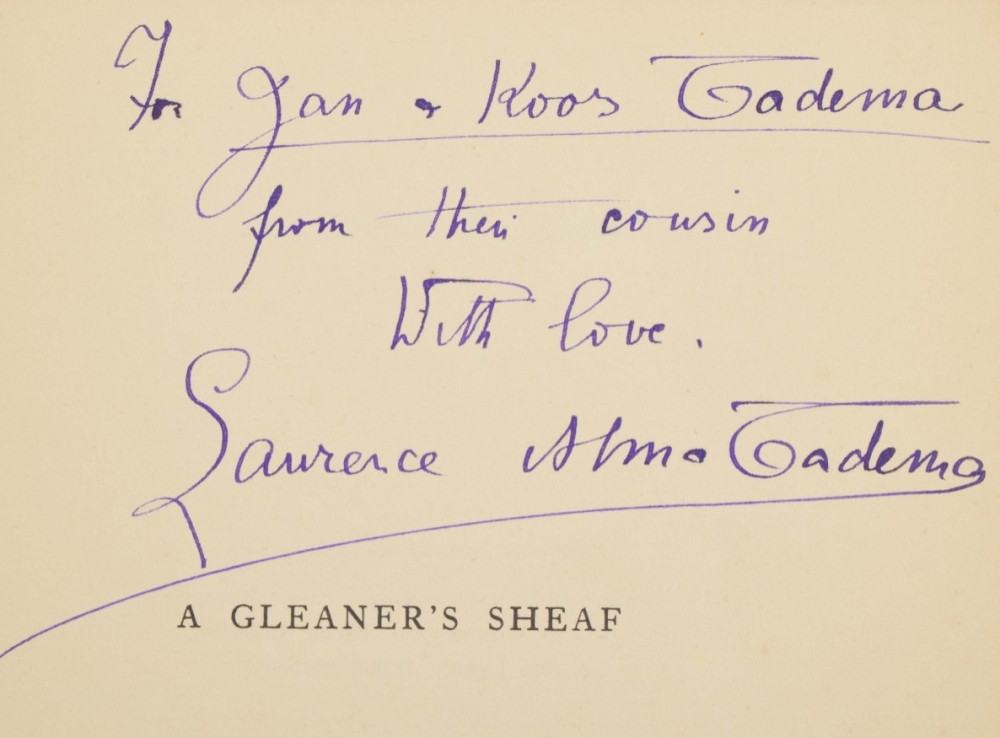 For Jan & Koos Tadema
from their cousin
With love.
Laurence Alma Tadema
A GLEANER'S SHEAF